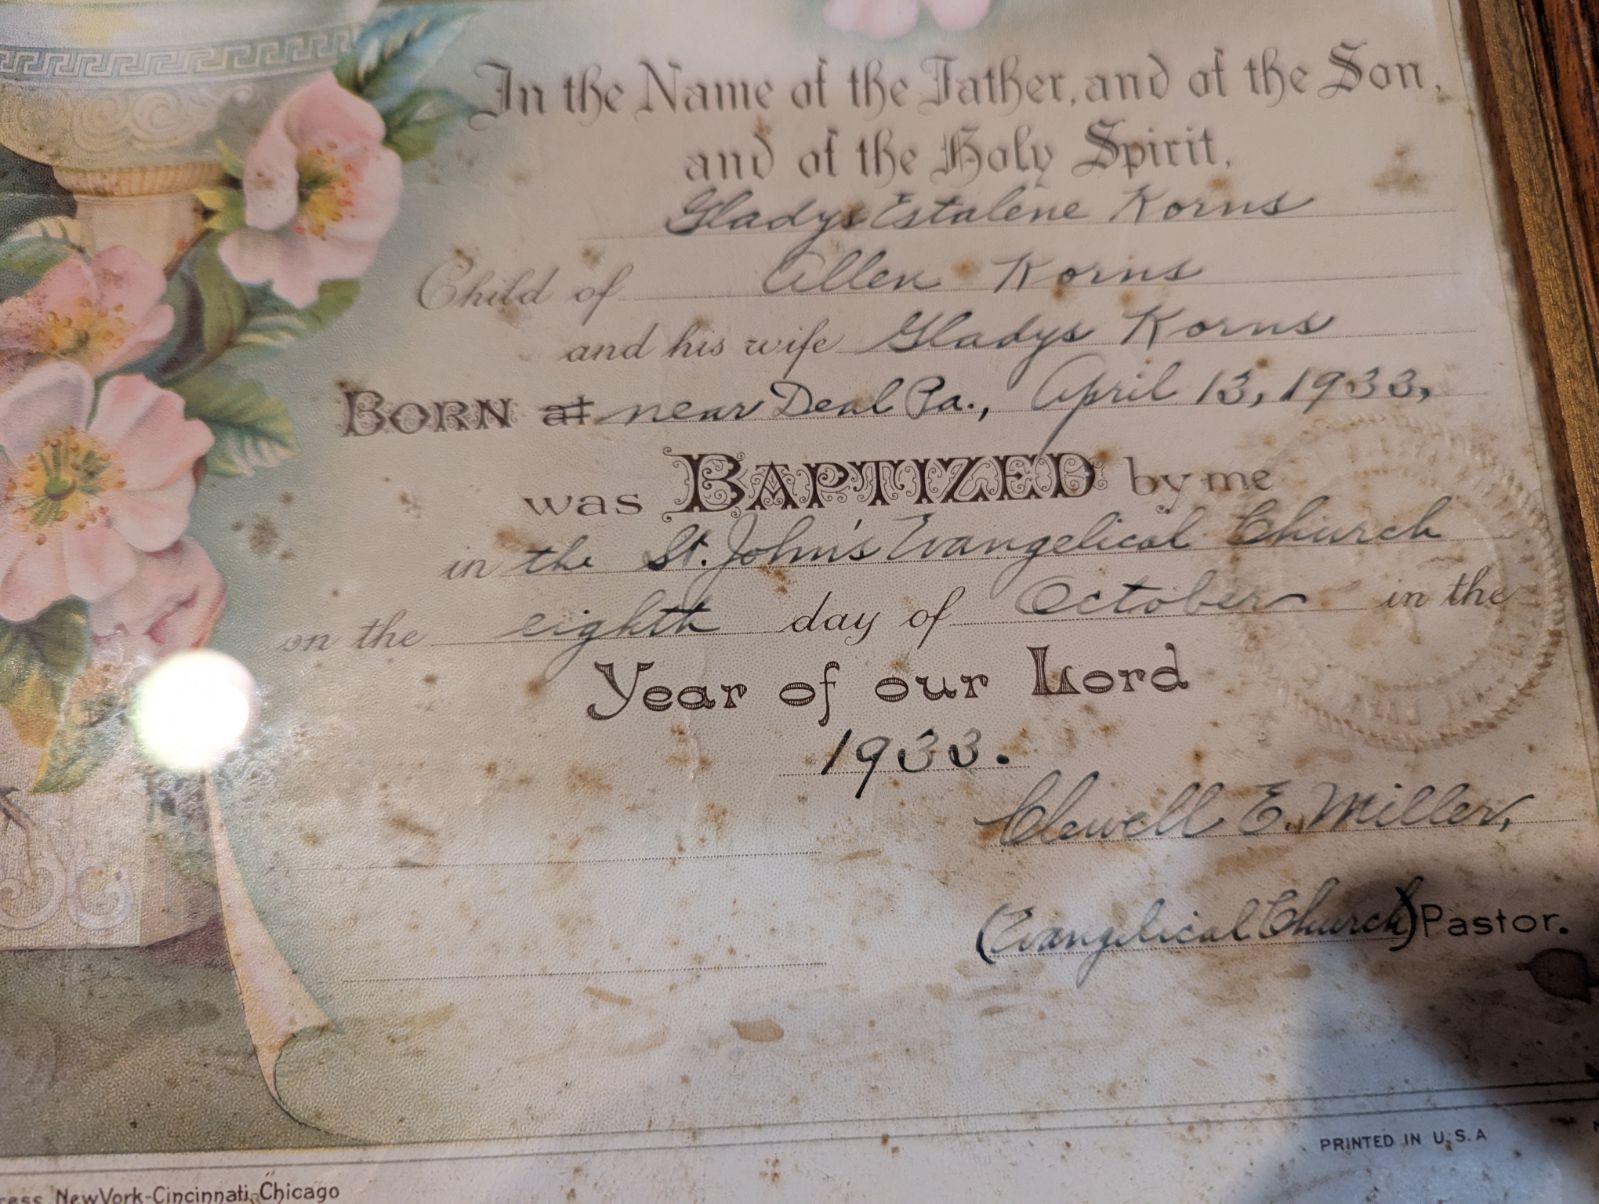 In the Name of the Father, and of the Son,
and of the Holy Spirit,
Gladys Estalene Korns
Child of Allen Korns
and his wife Gladys Korns
BORN at near Deal Pa., April 13, 1933,
was BAPTIZED by me
in the St. John's Evangelical Church
on the eighth day of October in the
Year of our Lord
1933.
Clewell E. Miller,
(Evangelical Church) Pastor.
PRINTED IN U.S.A
New York-Cincinnati, Chicago